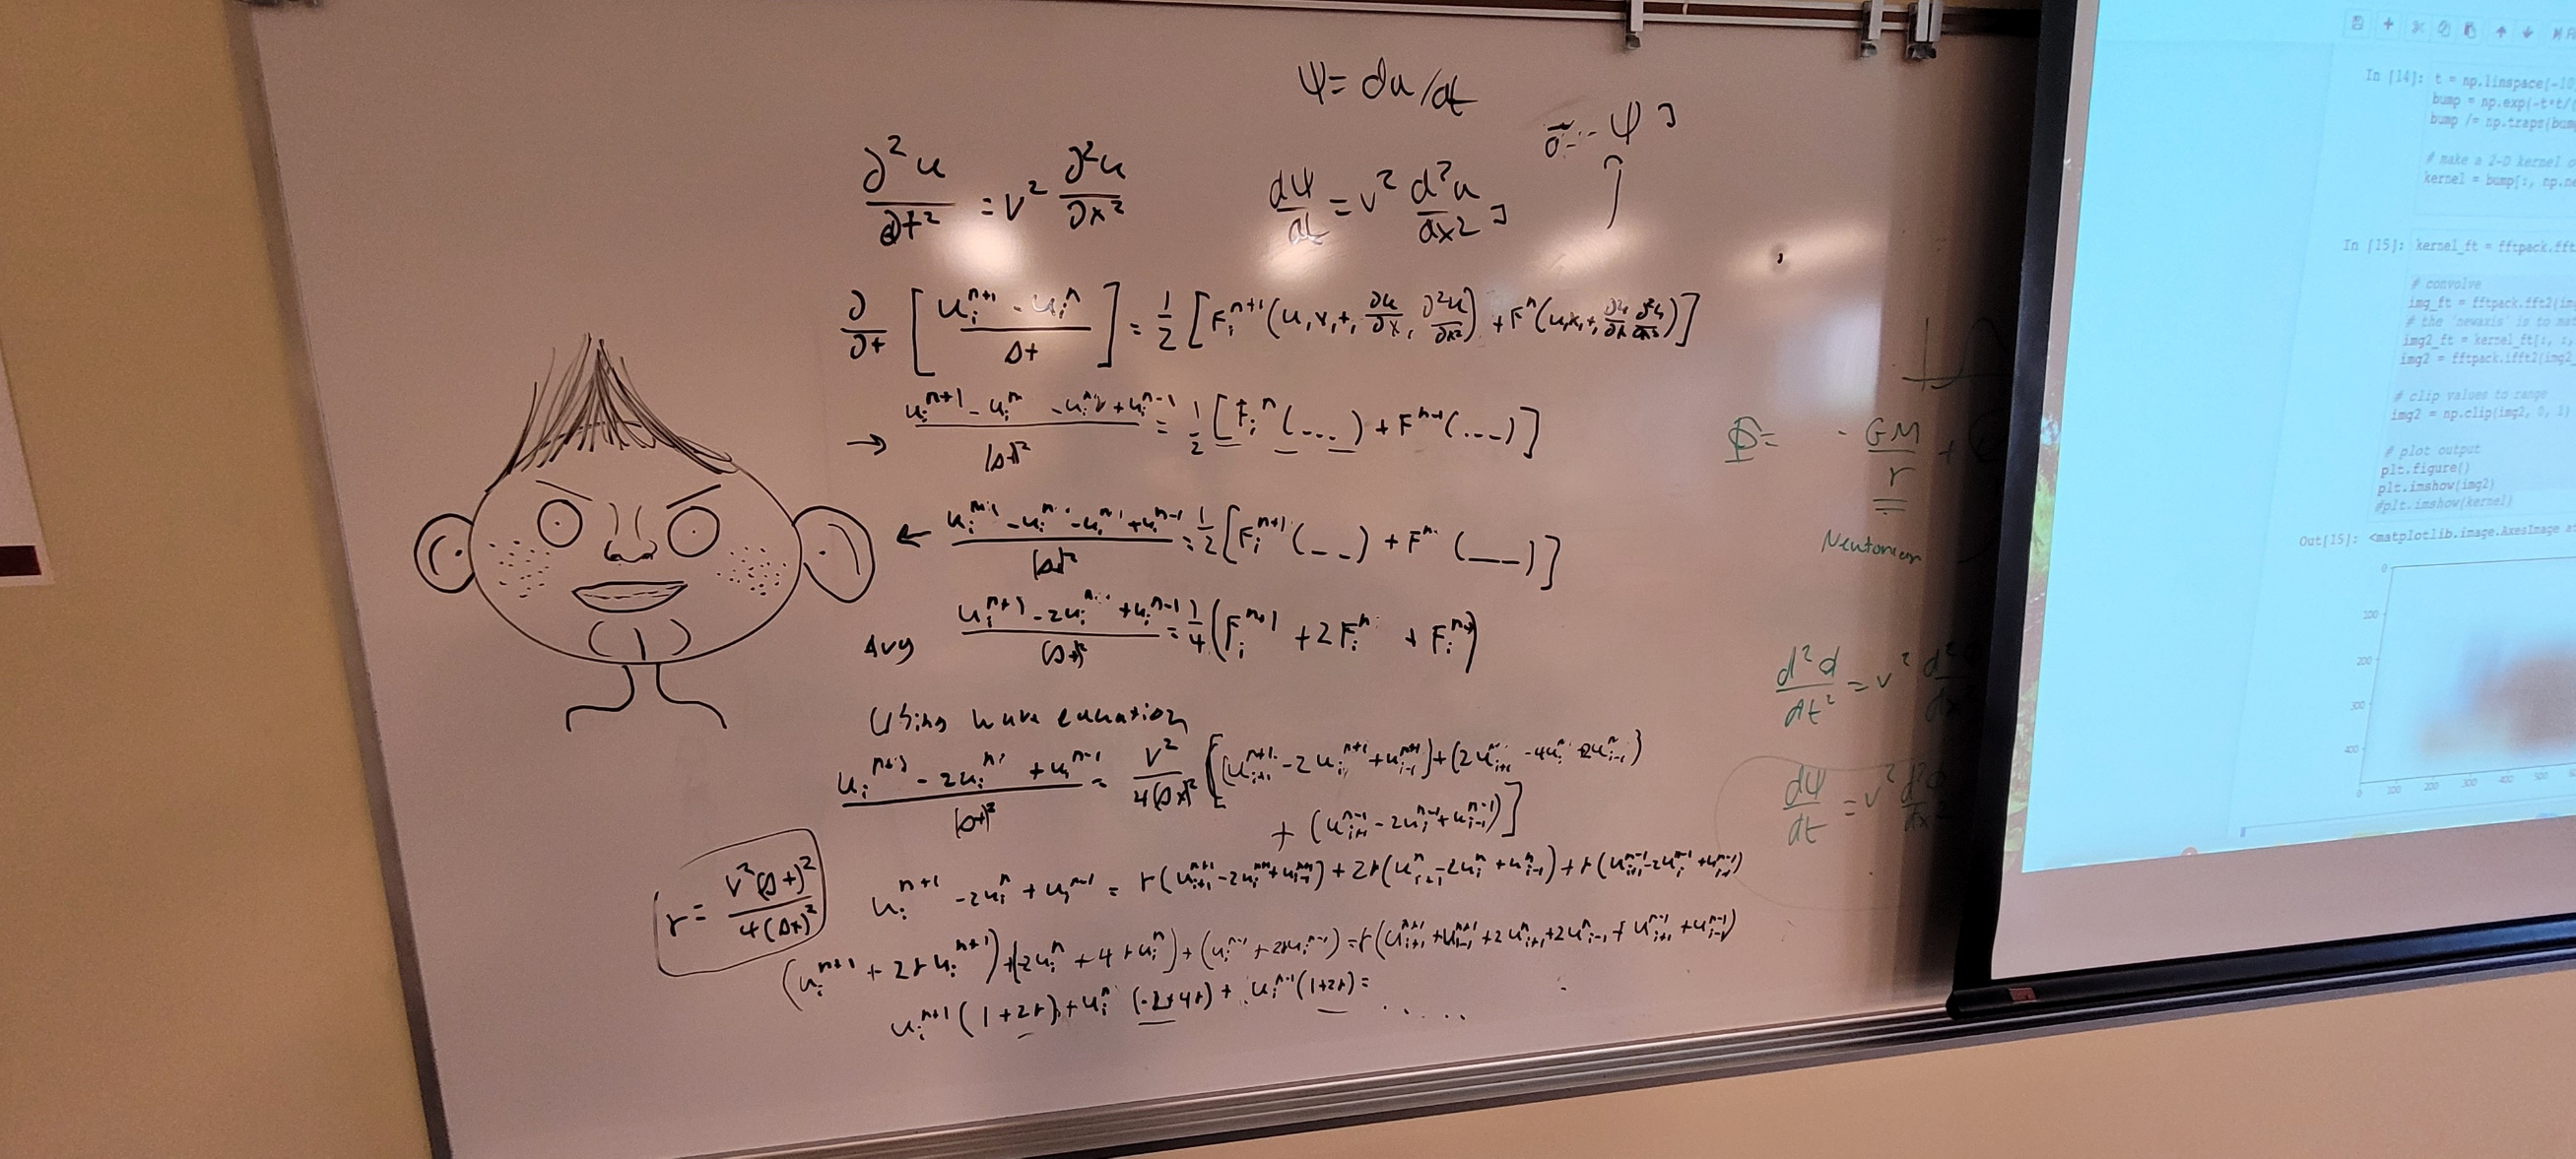 ψ = du/dt
∂²u/∂t² = v² ∂²u/∂x²
dψ/dt = v² d²u/dx²
∂/∂t [ (uᵢⁿ⁺¹ - uᵢⁿ)/Δt ] = 1/2 [ Fᵢⁿ⁺¹(u, x, t, ∂u/∂x, ∂²u/∂x²) + Fⁿ(u, x, t, ∂u/∂x ∂²u/∂x²) ]
→ (uᵢⁿ⁺¹ - uᵢⁿ - uᵢⁿ + uᵢⁿ⁻¹)/(Δt)² = 1/2 [ Fᵢⁿ (...) + Fⁿ⁻¹ (...) ]
← (uᵢⁿ⁺¹ - uᵢⁿ - uᵢⁿ + uᵢⁿ⁻¹)/(Δt)² = 1/2 [ Fᵢⁿ⁺¹ (_ _) + Fⁿ (_ _) ]
Avg (uᵢⁿ⁺¹ - 2uᵢⁿ + uᵢⁿ⁻¹)/(Δt)² = 1/4 (Fᵢⁿ⁺¹ + 2Fᵢⁿ + Fᵢⁿ⁻¹)
Using wave equation
(uᵢⁿ⁺¹ - 2uᵢⁿ + uᵢⁿ⁻¹)/(Δt)² = v²/4(Δx)² [ (uᵢ₊₁ⁿ⁺¹ - 2uᵢⁿ⁺¹ + uᵢ₋₁ⁿ⁺¹) + (2uᵢ₊₁ⁿ - 4uᵢⁿ + 2uᵢ₋₁ⁿ)
+ (uᵢ₊₁ⁿ⁻¹ - 2uᵢⁿ⁻¹ + uᵢ₋₁ⁿ⁻¹) ]
r = v²(Δt)²/4(Δx)²
uᵢⁿ⁺¹ - 2uᵢⁿ + uᵢⁿ⁻¹ = r(uᵢ₊₁ⁿ⁺¹ - 2uᵢⁿ⁺¹ + uᵢ₋₁ⁿ⁺¹) + 2r(uᵢ₊₁ⁿ - 2uᵢⁿ + uᵢ₋₁ⁿ) + r(uᵢ₊₁ⁿ⁻¹ - 2uᵢⁿ⁻¹ + uᵢ₋₁ⁿ⁻¹)
(uᵢⁿ⁺¹ + 2ruᵢⁿ⁺¹) + (-2uᵢⁿ + 4ruᵢⁿ) + (uᵢⁿ⁻¹ + 2ruᵢⁿ⁻¹) = r(uᵢ₊₁ⁿ⁺¹ + uᵢ₋₁ⁿ⁺¹ + 2uᵢ₊₁ⁿ + 2uᵢ₋₁ⁿ + uᵢ₊₁ⁿ⁻¹ + uᵢ₋₁ⁿ⁻¹)
uᵢⁿ⁺¹(1+2r) + uᵢⁿ(-2+4r) + uᵢⁿ⁻¹(1+2r) = .....
Φ = - GM/r +
Newtonian
d²d/dt² = v² d²
dψ/dt = v²
In [14]: t = np.linspace(-10
bump = np.exp(-t*t/
bump /= np.traps(bum
# make a 2-D kernel o
kernel = bump[:, np.ne
In [15]: kernel_ft = fftpack.fft
# convolve
img_ft = fftpack.fft2(im
# the 'newaxis' is to mat
img2_ft = kernel_ft[:, :,
img2 = fftpack.ifft2(img2_
# clip values to range
img2 = np.clip(img2, 0, 1)
# plot output
plt.figure()
plt.imshow(img2)
#plt.imshow(kernel)
Out[15]: <matplotlib.image.AxesImage at
0
100
200
300
400
0 100 200 300 400 500